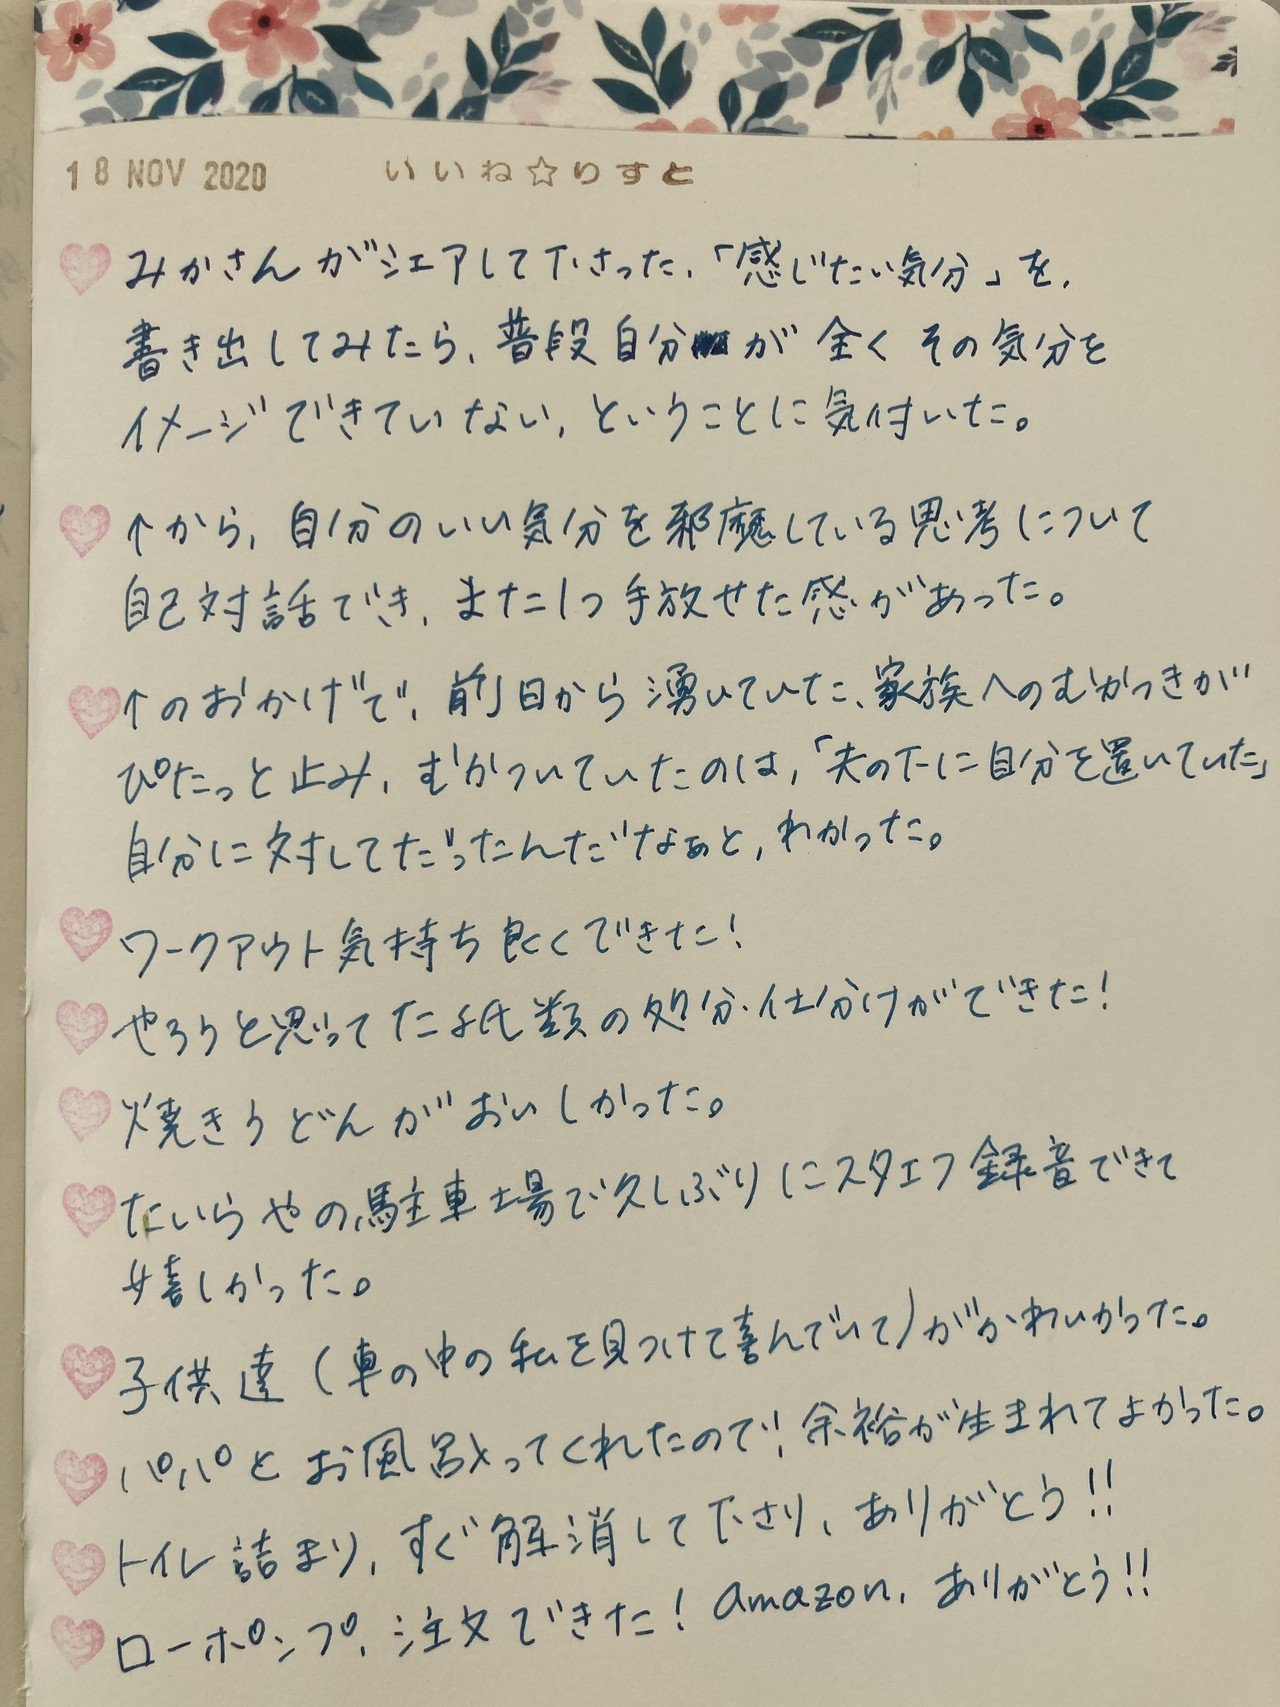 18 NOV 2020 いいね☆りすと
みかさんがシェアして下さった、「感じたい気分」を、
書き出してみたら、普段自分が全くその気分を
イメージできていない、ということに気付いた。
↑から、自分のいい気分を邪魔している思考について
自己対話でき、また1つ手放せた感があった。
↑のおかげで、前日から湧いていた、家族へのむかつきが
ぴたっと止み、むかついていたのは、「夫の下に自分を置いていた」
自分に対してだったんだなぁと、わかった。
ワークアウト気持ち良くできた!
やろうと思ってた紙類の処分・仕分けができた!
焼きうどんがおいしかった。
たいらやの駐車場で久しぶりにスタエフ録音できて
嬉しかった。
子供達(車の中の私を見つけて喜んでいて)がかわいかった。
パパとお風呂入ってくれたので、余裕が生まれてよかった。
トイレ詰まり、すぐ解消して下さり、ありがとう!!
ローポンプ、注文できた! amazon、ありがとう!!